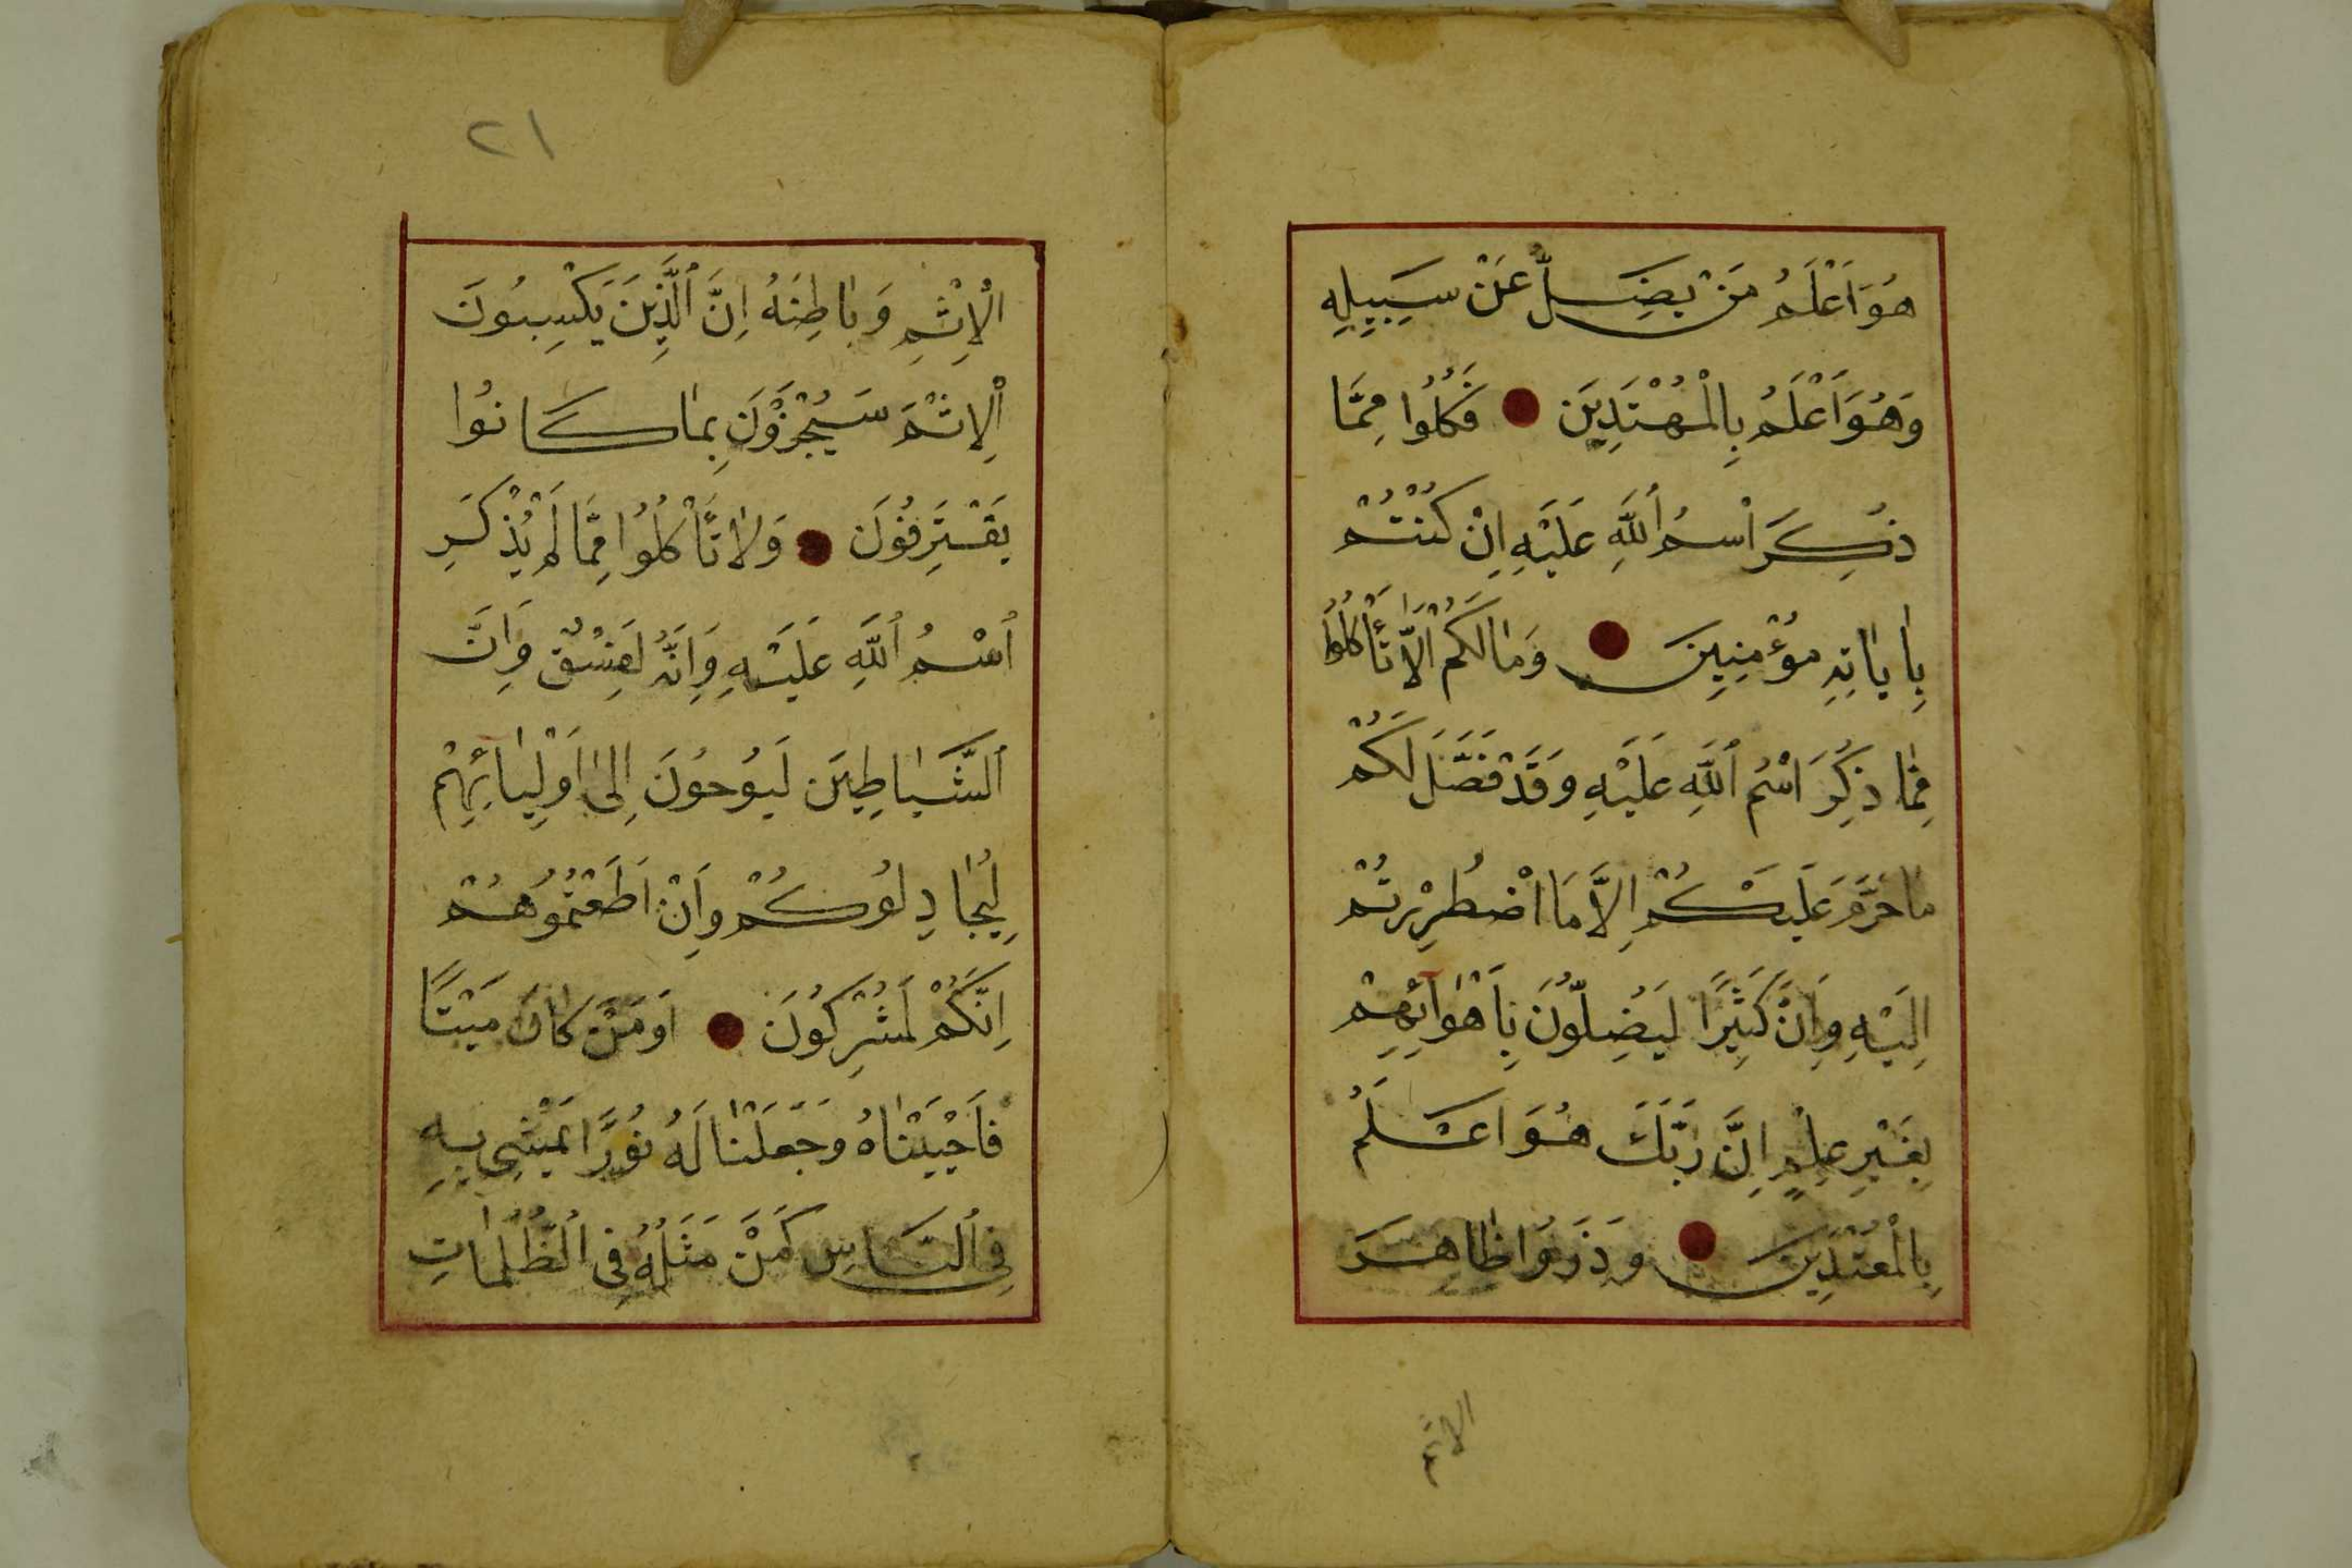 هُوَ اَعْلَمُ مَنْ يَضِلُّ عَنْ سَبِيلِهِ
وَهُوَ اَعْلَمُ بِالْمُهْتَدِينَ فَكُلُوا مِمَّا
ذُكِرَ اسْمُ اللّٰهِ عَلَيْهِ اِنْ كُنْتُمْ
بِاٰيَاتِهِ مُؤْمِنِينَ وَمَا لَكُمْ اَلَّا تَأْكُلُوا
مِمَّا ذُكِرَ اسْمُ اللّٰهِ عَلَيْهِ وَقَدْ فَصَّلَ لَكُمْ
مَا حَرَّمَ عَلَيْكُمْ اِلَّا مَا اضْطُرِرْتُمْ
اِلَيْهِ وَاِنَّ كَثِيرًا لَيُضِلُّونَ بِاَهْوَائِهِمْ
بِغَيْرِ عِلْمٍ اِنَّ رَبَّكَ هُوَ اَعْلَمُ
بِالْمُعْتَدِينَ وَذَرُوا ظَاهِرَ
الاثم
٢١
الْاِثْمِ وَبَاطِنَهُ اِنَّ الَّذِينَ يَكْسِبُونَ
الْاِثْمَ سَيُجْزَوْنَ بِمَا كَانُوا
يَقْتَرِفُونَ وَلَا تَأْكُلُوا مِمَّا لَمْ يُذْكَرِ
اسْمُ اللّٰهِ عَلَيْهِ وَاِنَّهُ لَفِسْقٌ وَاِنَّ
الشَّيَاطِينَ لَيُوحُونَ اِلٰى اَوْلِيَائِهِمْ
لِيُجَادِلُوكُمْ وَاِنْ اَطَعْتُمُوهُمْ
اِنَّكُمْ لَمُشْرِكُونَ اَوَمَنْ كَانَ مَيْتًا
فَاَحْيَيْنَاهُ وَجَعَلْنَا لَهُ نُورًا يَمْشِى بِهِ
فِى النَّاسِ كَمَنْ مَثَلُهُ فِى الظُّلُمَاتِ